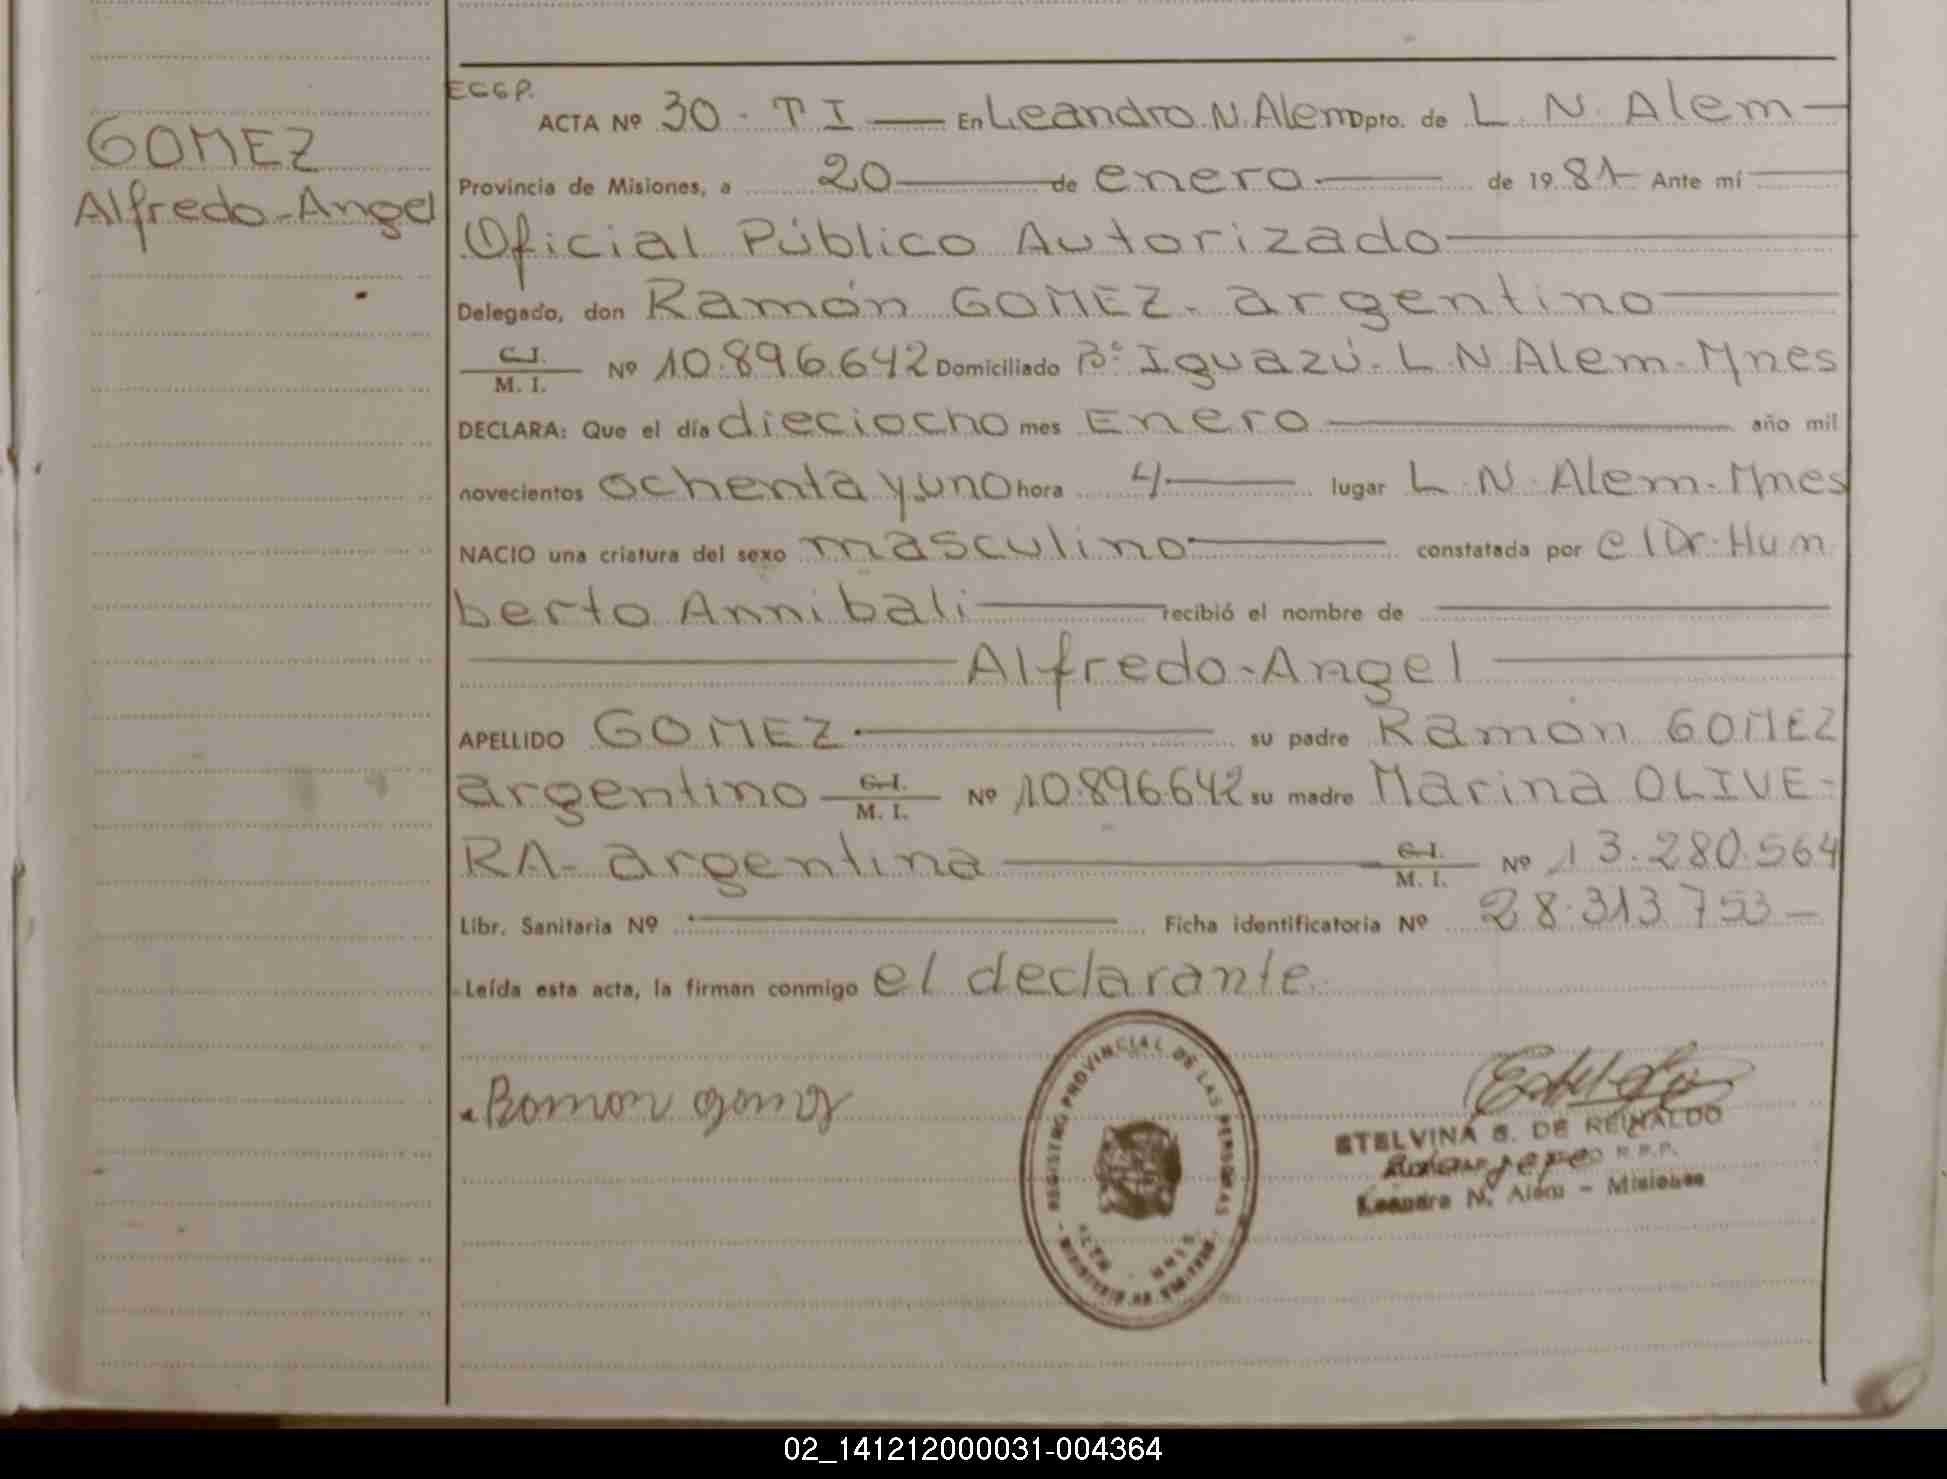 GOMEZ
Alfredo-Angel
ECGP.
ACTA Nº 30 - T I — En Leandro N. Alem Dpto. de L. N. Alem —
Provincia de Misiones, a 20 — de enero — de 1981 - Ante mí —
Oficial Público Autorizado —
Delegado, don Ramón GOMEZ - argentino —
C.I.
M. I. Nº 10.896.642 Domiciliado Bº Iguazú - L. N Alem - Mnes
DECLARA: Que el día dieciocho mes Enero — año mil
novecientos ochenta y uno hora 4 — lugar L. N. Alem - Mnes
NACIO una criatura del sexo masculino — constatada por el Dr. Hum
berto Annibali — recibió el nombre de —
— Alfredo-Angel —
APELLIDO GOMEZ — su padre Ramón GOMEZ
argentino — C.I. M. I. Nº 10.896.642 su madre Marina OLIVE-
RA - argentina — C.I. M. I. Nº 13.280.564
Libr. Sanitaria Nº — Ficha identificatoria Nº 28.313.753 —
Leída esta acta, la firman conmigo el declarante.
Ramon gomez
REGISTRO PROVINCIAL DE LAS PERSONAS
ETELVINA S. DE REINALDO
R.P.P.
Leandro N. Alem - Misiones
02_141212000031-004364